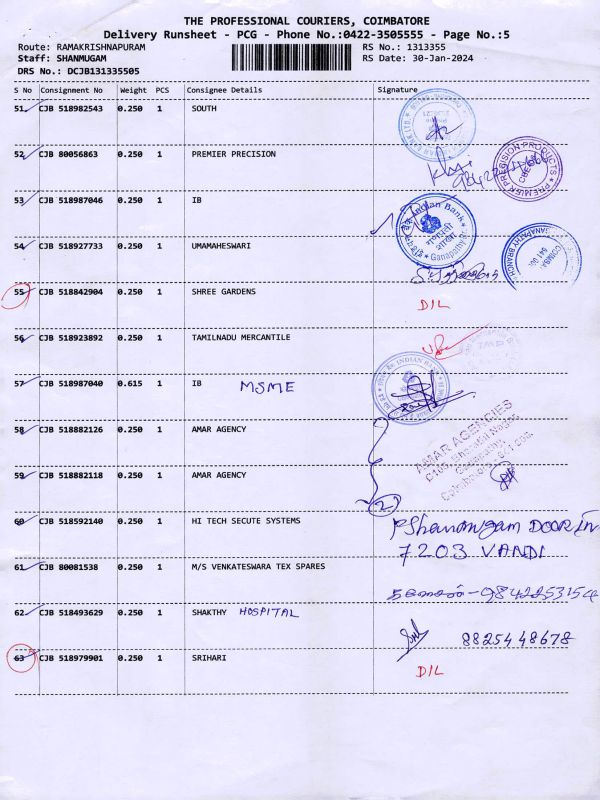 THE PROFESSIONAL COURIERS, COIMBATORE
Delivery Runsheet - PCG - Phone No.:0422-3505555 - Page No.:5
Route: RAMAKRISHNAPURAM RS No.: 1313355
Staff: SHANMUGAM RS Date: 30-Jan-2024
DRS No.: DCJB131335505
S No Consignment No Weight PCS Consignee Details Signature
51 CJB 518982543 0.250 1 SOUTH
52 CJB 80056863 0.250 1 PREMIER PRECISION
PREMIER PRECISION PRODUCTS
53 CJB 518987046 0.250 1 IB
Indian Bank
Ganapathy
54 CJB 518927733 0.250 1 UMAMAHESWARI
GANAPATHY BRANCH
55 CJB 518842904 0.250 1 SHREE GARDENS D/L
56 CJB 518923892 0.250 1 TAMILNADU MERCANTILE
57 CJB 518987040 0.615 1 IB MSME
INDIAN BANK
58 CJB 518882126 0.250 1 AMAR AGENCY
AMAR AGENCIES
59 CJB 518882118 0.250 1 AMAR AGENCY
2
60 CJB 518592140 0.250 1 HI TECH SECUTE SYSTEMS
P Shanmugam DOOR in
7203 VANDI
61 CJB 80081538 0.250 1 M/S VENKATESWARA TEX SPARES
62 CJB 518493629 0.250 1 SHAKTHY HOSPITAL
8825448678
63 CJB 518979901 0.250 1 SRIHARI D/L